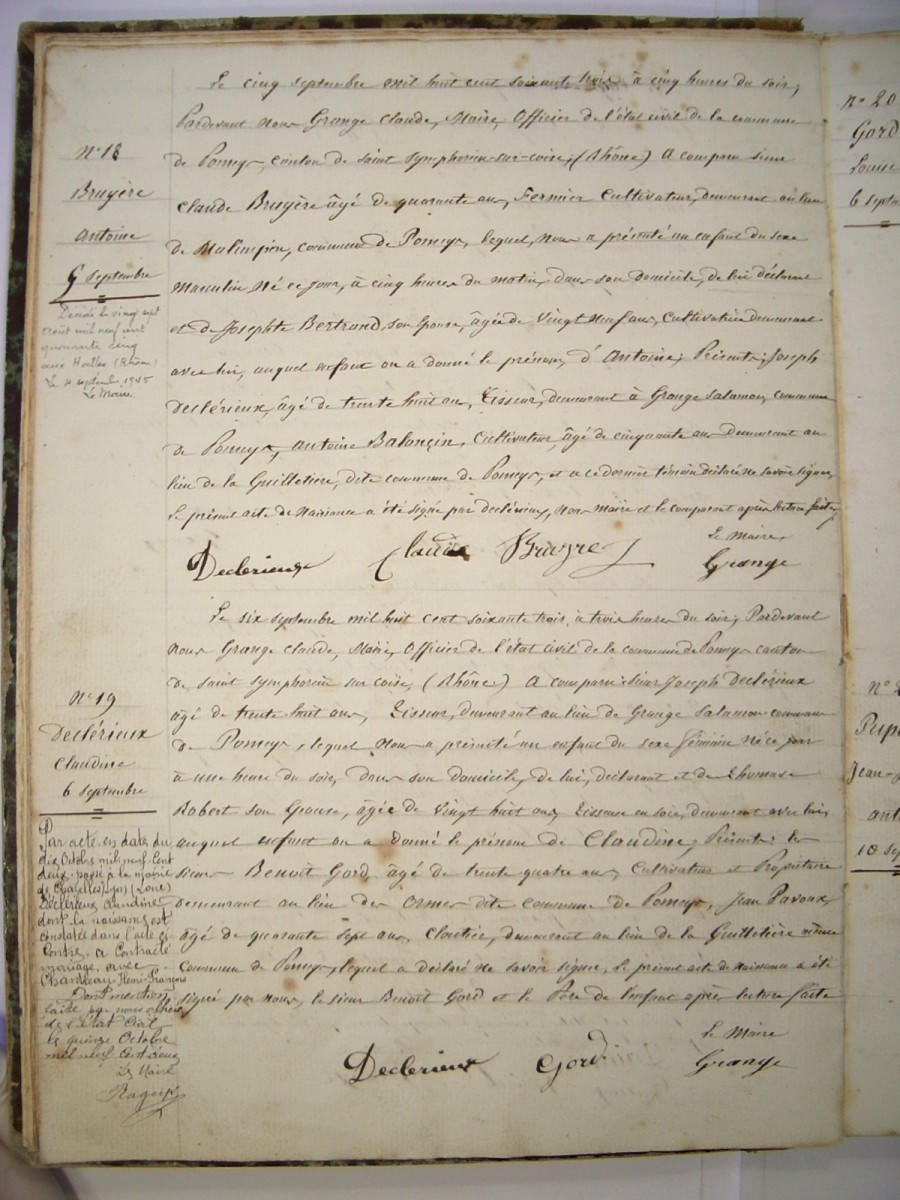 Le cinq septembre mil huit cent soixante trois à cinq heures du soir,
Pardevant nous Grange Claude, Maire, Officier de l'état civil de la commune
de Pomeys, canton de Saint Symphorien-sur-coise, (Rhône) A comparu sieur
Claude Bruyère âgé de quarante ans, Fermier Cultivateur, demeurant au lieu
de commune de Pomeys, lequel, nous a présenté un enfant du sexe
Masculin né ce jour, à cinq heures du matin, dans son domicile, de lui déclarant
et de Josephte Bertrand, son épouse, âgée de vingt neuf ans, Cultivatrice demeurant
avec lui, auquel enfant on a donné le prénom, d'Antoine; Présents; Joseph
Declérieux, âgé de trente huit ans, Tisseur, demeurant à Grange Salamon, commune
de Pomeys, Antoine Balançin, Cultivateur, âgé de cinquante ans Demeurant au
lieu de la Guilletière, dite commune de Pomeys, et a ce dernier témoin déclaré ne savoir signer,
Le présent acte de Naissance a été signé par declérieux, nous Maire et le comparant après lecture faite
Declerieux Claude Bruyre Le Maire
Grange
N° 18
Bruyère
Antoine
5 septembre
Décédé le vingt sept
août mil neuf cent
quarante cinq
aux Halles (Rhône)
Le 4 septembre 1945
Le Maire.
Le six septembre mil huit cent soixante trois, à trois heures du soir, Pardevant
nous Grange Claude, Maire, Officier de l'état civil de la commune de Pomeys canton
de Saint Symphorien sur coise, (Rhône) A comparu sieur Joseph Declérieux
âgé de trente huit ans, Tisseur, demeurant au lieu de Grange Salamon commune
de Pomeys, lequel nous a présenté un enfant du sexe féminin né ce jour
à une heure du soir, dans son domicile, de lui, déclarant et de Thomase
Robert son épouse, âgée de vingt huit ans, Tisseuse en soie, demeurant avec lui,
auquel enfant on a donné le prénom de Claudine, Présents: les
sieurs Benoit Gord, âgé de trente quatre ans, Cultivateur et Propriétaire
demeurant au lieu des Ormes dite commune de Pomeys, Jean Pavoux
âgé de quarante sept ans, Cloutier, demeurant au lieu de la Guilletière même
Commune de Pomeys, lequel a déclaré ne savoir signer, le présent acte de naissance a été
signé par nous, le sieur Benoit Gord et le Père de l'enfant après lecture faite
Declerieux Gord Le Maire
Grange
N° 19
Declérieux
Claudine
6 septembre
Par acte, en date du
dix Octobre mil neuf cent
deux, passé à la mairie
de Chazelles s/Lyon (Loire)
Declérieux Claudine
dont la naissance est
constatée dans l'acte ci
contre, a contracté
mariage, avec
Henri-François
Dont mention
faite par nous officier
de l'Etat Civil
le quinze Octobre
mil neuf cent deux
Le Maire
n° 20
Gord
Louise
6 sept
n° 2
Jean-
ant
10 sep